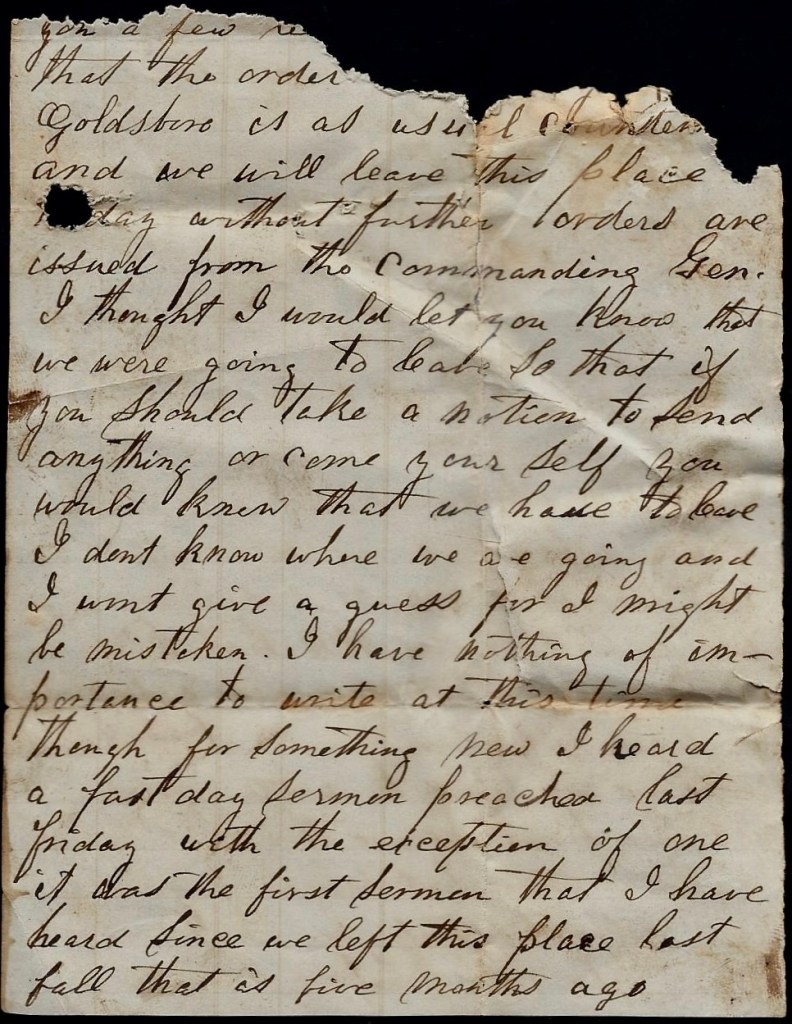 you a few
that the order
Goldsboro is as usual
and we will leave this place
without further orders are
issued from the Commanding Gen.
I thought I would let you know that
we were going to leave So that if
you should take a notion to send
anything or come your self you
would know that we have to leave
I dont know where we are going and
I wont give a guess for I might
be mistaken. I have nothing of im-
portance to write at this time
though for something new I heard
a fast day sermon preached last
friday with the exception of one
it was the first sermon that I have
heard since we left this place last
fall that is five months ago